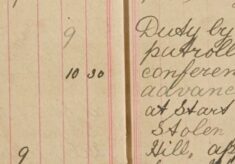 9
10 30
9
Duty by
patroll
conferen
advance
at Start
Stolen
Hill, af